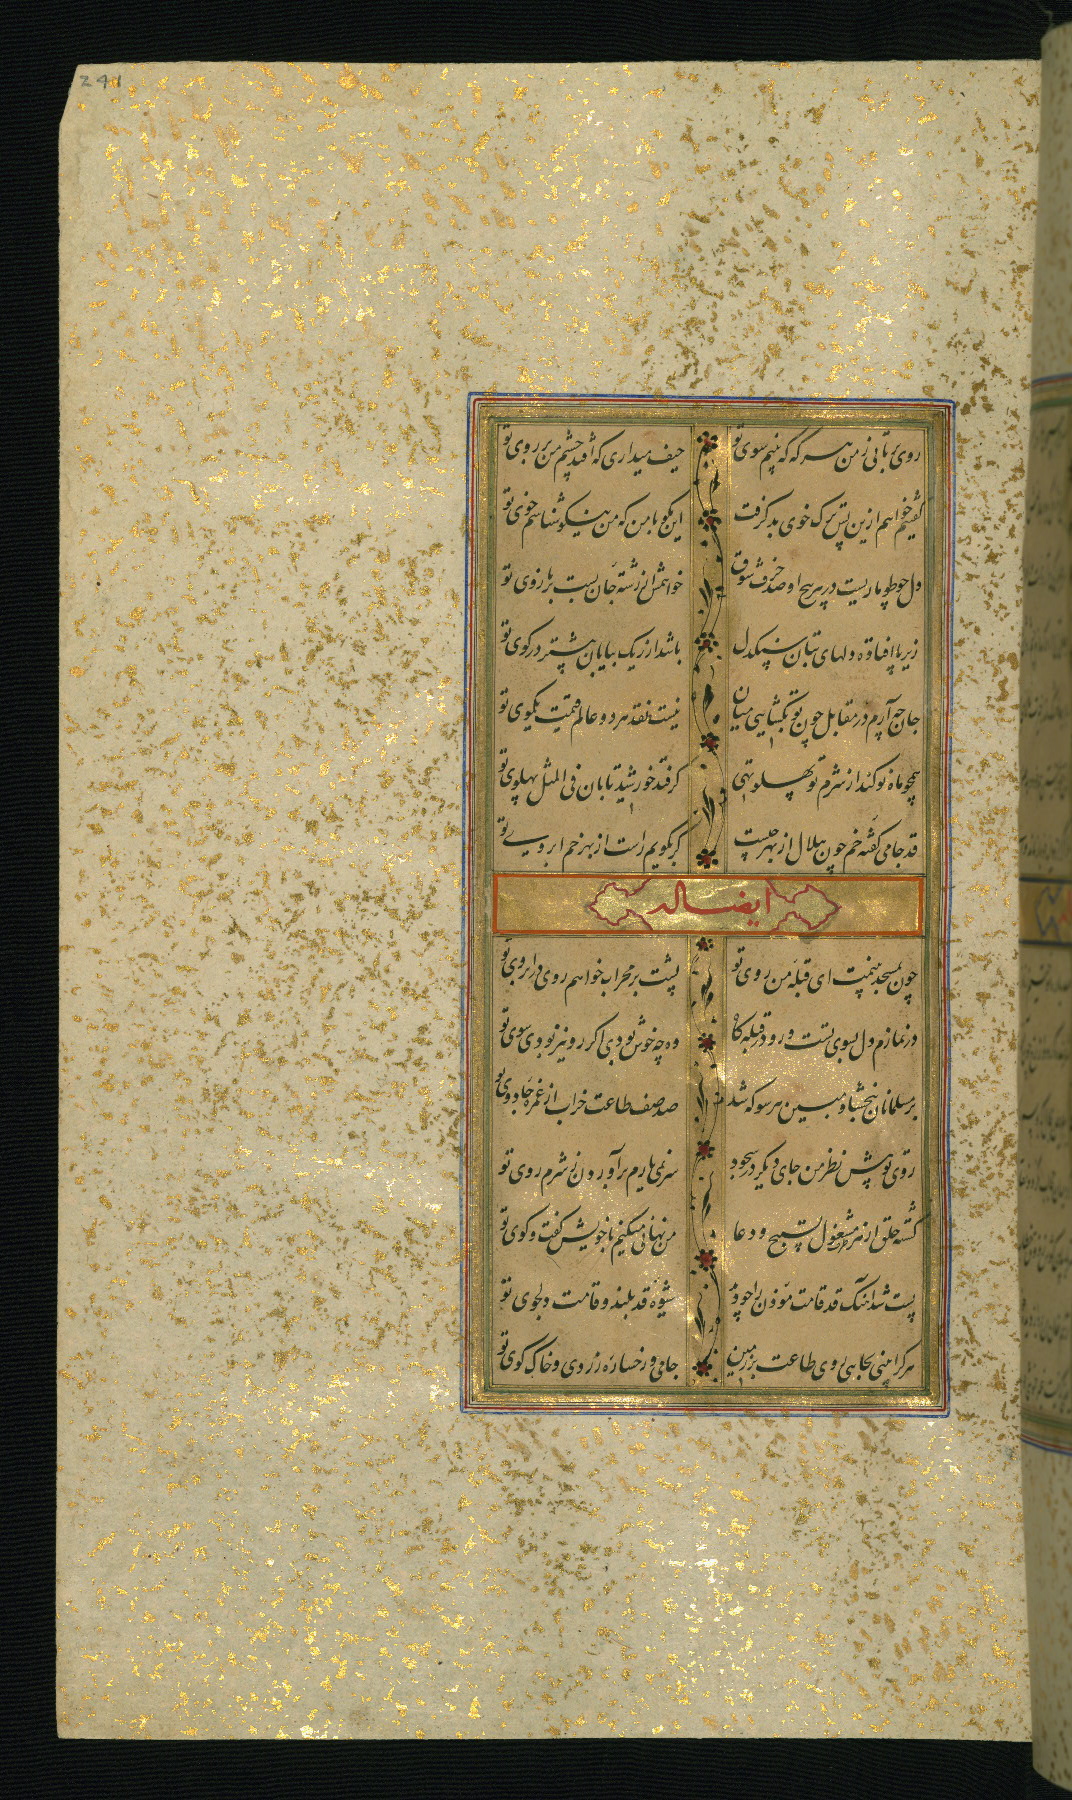 241
روی برتابی ز من هر گه که بینم سوی تو حیف میداری که افتد چشم من بر روی تو
گفتیم خواهم ازین پس ترک خوی بد گرفت این مگو با من که من نیکو شناسم خوی تو
دل چو طوماریست در هر پیچ او صد حرف شوق خواهمش از رشته جان بست بر بازوی تو
زیر پا افتاده دلهای بتان سنگدل باشد از ریگ بیابان بیشتر در کوی تو
جان چه آرم در مقابل چون تو بگشایی میان نیست نقد هر دو عالم قیمت یکموی تو
همچو ماه نو کند از شرم تو پهلو تهی گر فتد خورشید تابان فی المثل پهلوی تو
قد جامی گفته خم چون هلال از بهر چیست گر بگویم راست از بهر خم ابروی تو
ایضا له
چون بمسجد بینمت ای قبله من روی تو پشت بر محراب خواهم روی در ابروی تو
در نمازم دل بسوی تست و رو در قبله گاه وه چه خوش بودی اگر رو نیز بودی سوی تو
بر مسلمانان ببخشا و مبین هر سو که شد صد صف طاعت خراب از غمزه جادوی تو
روی تو پیش نظر من جای دیگر در سجود سر نمی یارم برآوردن ز شرم روی تو
گشته خلق از هر طرف مشغول تسبیح و دعا من نهانی میکنم با خویش گفت و گوی تو
پست شد آهنگ قد قامت موذن را چو دید شیوه قد بلند و قامت دلجوی تو
هر کرا بینی بجایی روی طاعت بر زمین جامی و رخساره زردی و خاک کوی تو